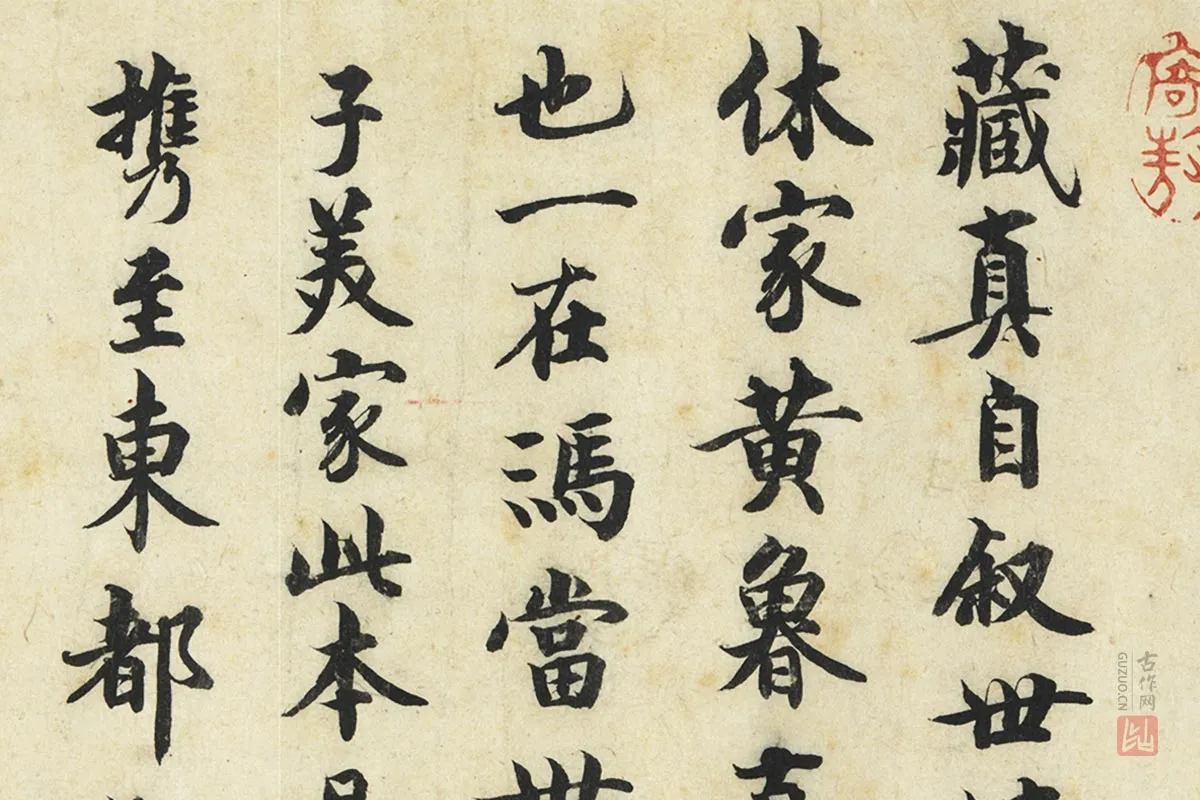 藏真自叙世
休家黄魯
也一在馮當世
子美家此本
携至東都
古作网
GUZUO.CN